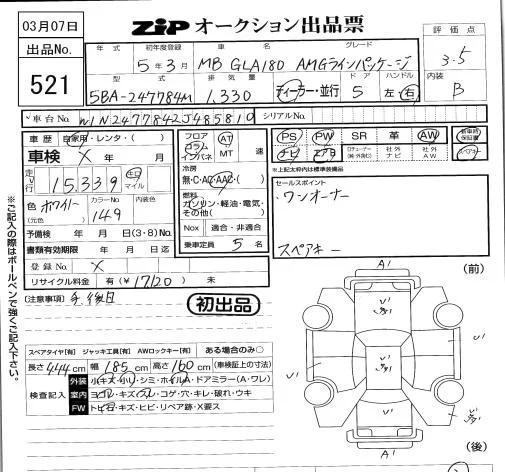 03月07日
ZIP オークション出品票
評価点
3.5
出品No.
521
年式 初年度登録 車名 グレード
5年3月 MB GLA180 AMGラインパッケージ
型式 排気量 ドア ハンドル
5BA-247784M 1,330 ディーラー・並行 5 左・右
内装
B
車台No. W1N2477842J485810 シリアルNo.
車歴 自家用・レンタ・( )
車検 X 年 月
走行 15,339 キロ マイル
色 ホワイト カラーNo. 149 内装色
(元色)
予備検 年 月 日(3・8)No.
書類有効期限 年 月 日迄
登録No. X
リサイクル料金 有(¥17120) 未
フロア AT
コラム
インパネ MT 速
冷房
無・C・AC・AAC・( )
燃料
ガソリン・軽油・電気・
その他( )
Nox 適合・非適合
乗車定員 5 名
PS PW SR 革 AW 新車時保証書
ナビ エアB 社外ナビ 社外AW スペアキー
※上記太枠内は標準装備品
セールスポイント
ワンオーナー
スペアキー
(注意事項) 書後日
初出品
※ご記入の際はボールペンで強くご記入下さい。
スペアタイヤ[有] ジャッキ工具[有] AWロックキー[有] ある場合のみ○
長さ 444cm 幅 185cm 高さ 160cm (車検証上の寸法)
検査記入
外装 小(キズ・凹)・シミ・ホイルA・ドアミラー(A・ワレ)
室内 ヨゴレ・キズ・スレ・コゲ・穴・キレ・破れ・ウキ
FW トビ石・キズ・ヒビ・リペア跡・X要ス
(前)
A1
U1
A1
U1
(後)